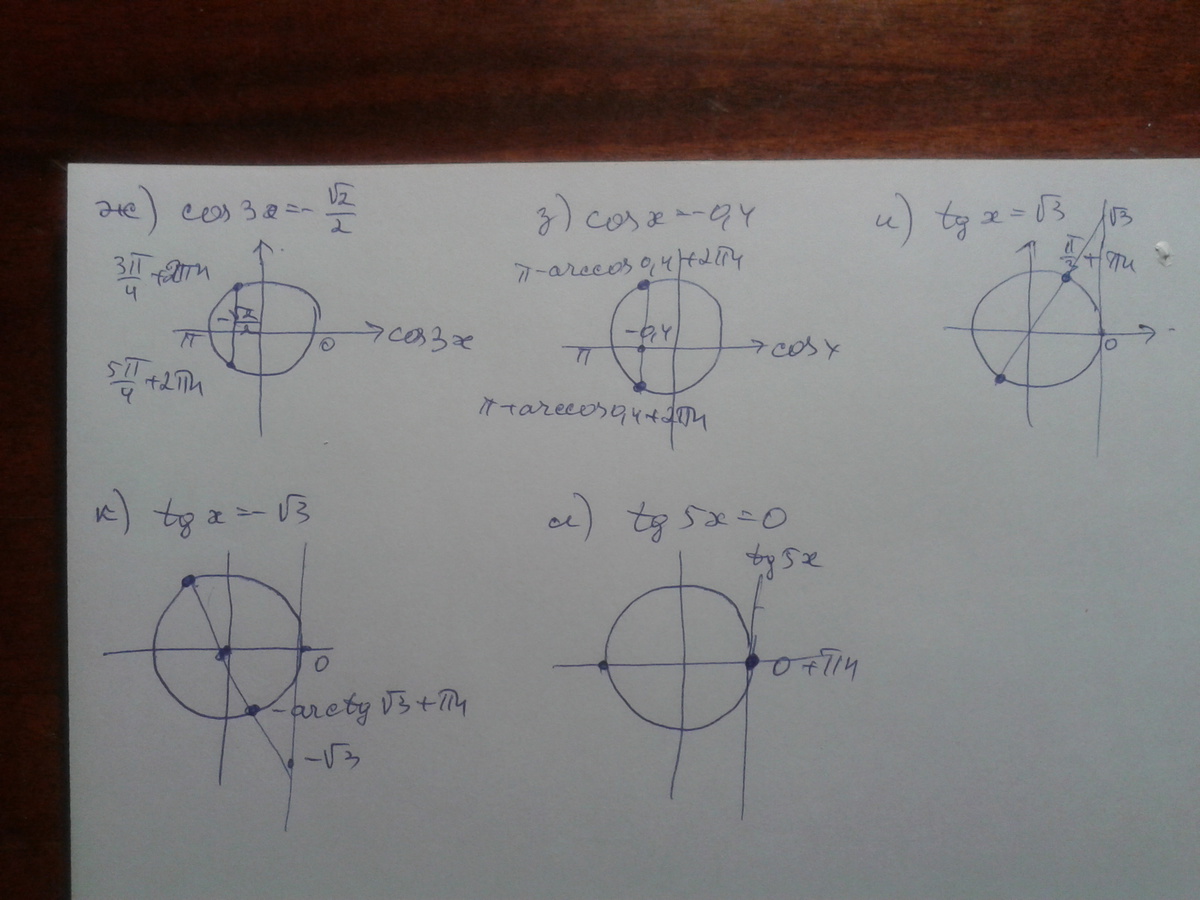 ж) cos 3x = -√2/2
3π/4 + 2πn
-√2/2
π
0
cos 3x
5π/4 + 2πn
з) cos x = -0,4
π - arccos 0,4 + 2πn
-0,4
π
cos x
π + arccos 0,4 + 2πn
и) tg x = √3
√3
π/3 + πn
0
к) tg x = -√3
0
-arctg √3 + πn
-√3
л) tg 5x = 0
tg 5x
0 + πn